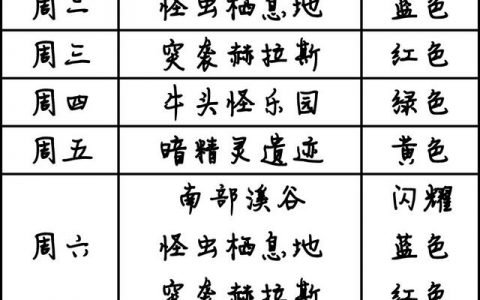 周二 怪虫栖息地 蓝色
周三 突袭赫拉斯 红色
周四 牛头怪乐园 绿色
周五 暗精灵遗迹 黄色
南部溪谷 闪耀
周六 怪虫栖息地 蓝色
突袭赫拉斯 红色